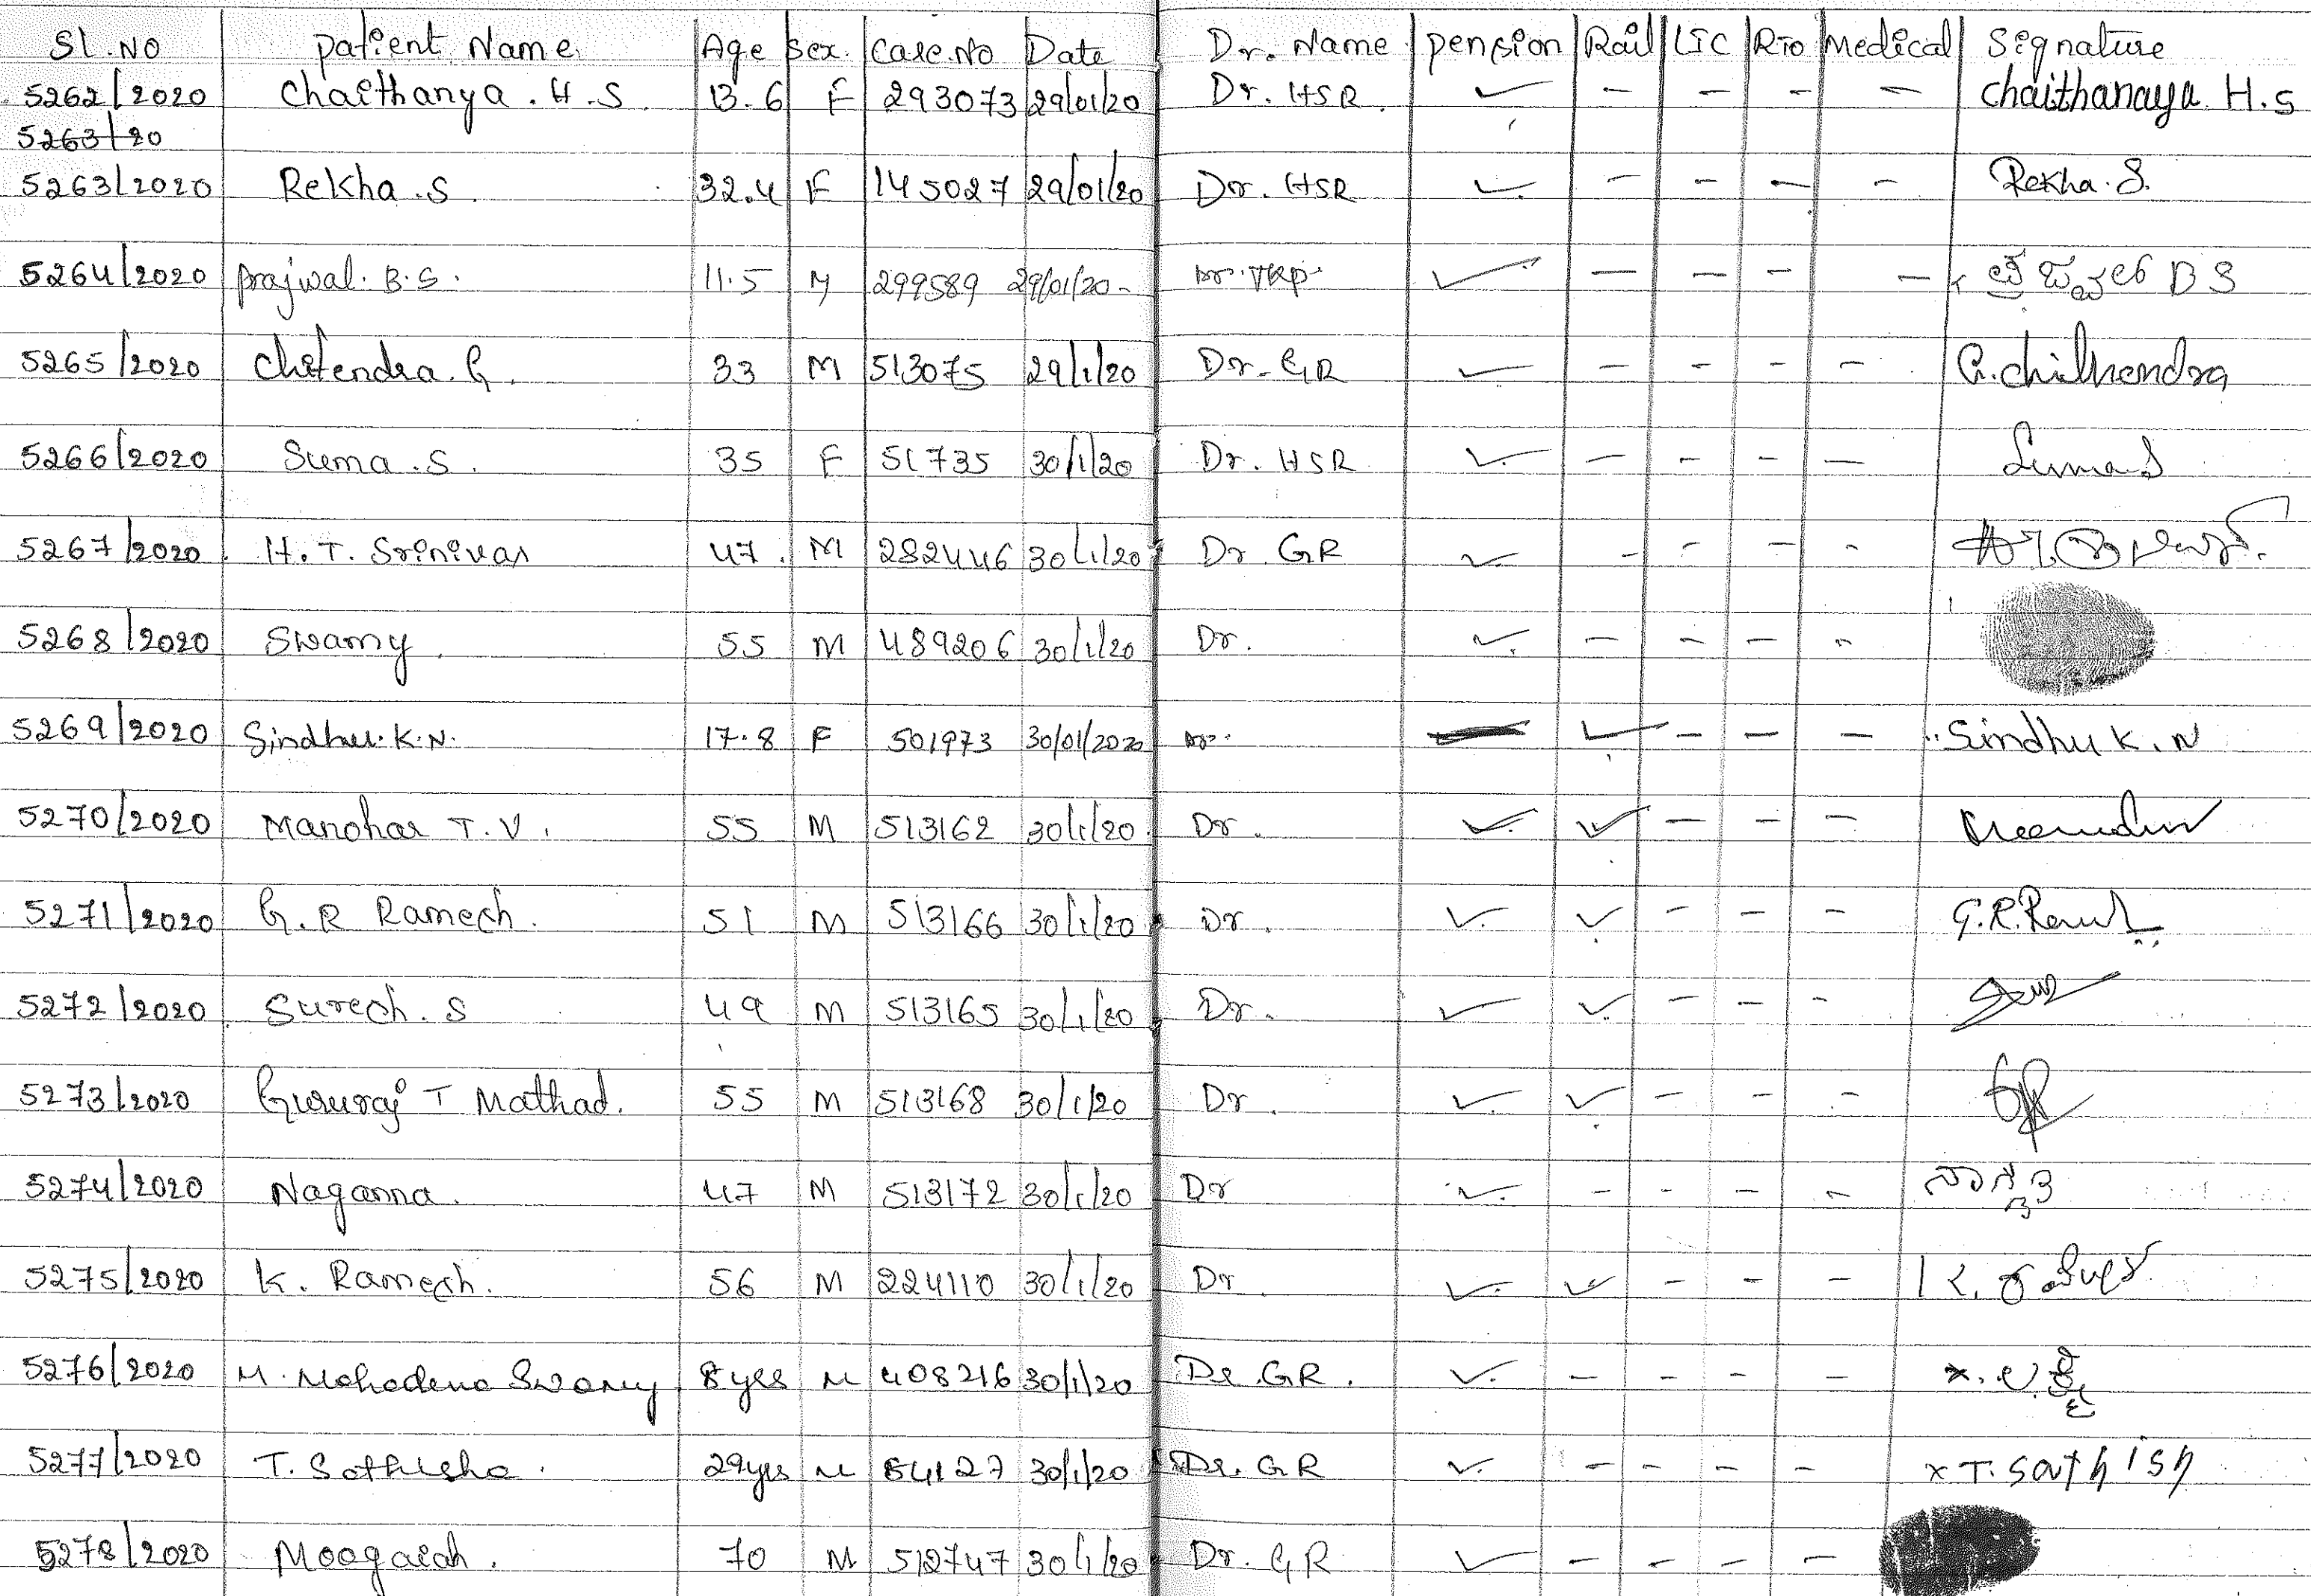 Sl.No Patient Name Age Sex Case.No Date Dr. Name Pension Rail LIC RTO Medical Signature
5262/2020 Chaithanya . H . S . 13.6 F 293073 29/01/20 Dr. HSR . ✓ - - - - Chaithanaya H.S
5263/20
5263/2020 Rekha . S 32.4 F 145027 29/01/20 Dr. HSR ✓ - - - - Rekha . S.
5264/2020 Prajwal. B.S. 11.5 M 299589 29/01/20 - Dr. ✓ - - - - B S
5265/2020 Chetendra. G . 33 M 513075 29/1/20 Dr. GR ✓ - - - - G. Chithendra
5266/2020 Suma . S . 35 F 51735 30/1/20 Dr. HSR ✓ - - - - Suma S
5267/2020 H. T. Srinivas 47 . M 282446 30/1/20 Dr GR ✓ - - - -
5268/2020 Swamy . 55 M 489206 30/1/20 Dr. ✓ - - - -
5269/2020 Sindhu. K.N. 17.8 F 501973 30/01/2020 Dr. ✓ - - - Sindhu K . N
5270/2020 Manohar T. V . 55 M 513162 30/1/20 Dr . ✓ ✓ - - -
5271/2020 G. R Ramesh . 51 M 513166 30/1/20 Dr . ✓ ✓ - - - G.R.
5272/2020 Suresh . S 49 M 513165 30/1/20 Dr . ✓ ✓ - - -
5273/2020 Gururaj T Mathad. 55 M 513168 30/1/20 Dr . ✓ ✓ - - -
5274/2020 Naganna . 47 M 513172 30/1/20 Dr ✓ - - - -
5275/2020 K. Ramesh . 56 M 224110 30/1/20 Dr ✓ ✓ - - -
5276/2020 M. Mahadeva Swamy 8 yrs M 408216 30/1/20 Dr. GR . ✓ - - - -
5277/2020 T. Sathisha . 29yrs M 54127 30/1/20 Dr. GR ✓ - - - - x T. Sathish
5278/2020 Moogaiah . 70 M 512747 30/1/20 Dr. GR ✓ - - - -